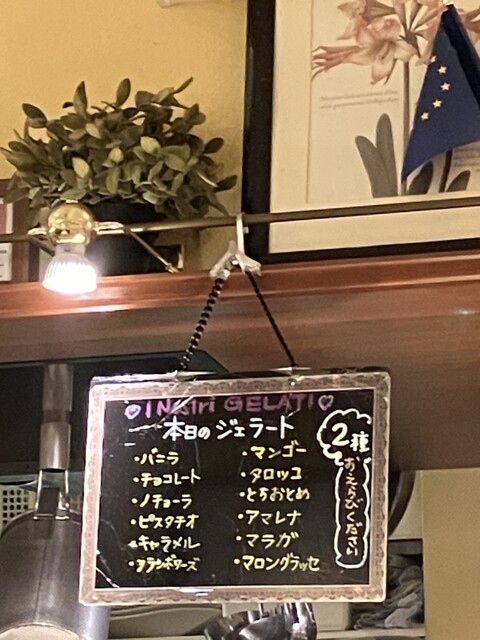 I Nostri GELATI
本日のジェラート
・バニラ
・チョコレート
・ノチョーラ
・ピスタチオ
・キャラメル
・フランボワーズ
・マンゴー
・タロッコ
・とちおとめ
・アマレナ
・マラガ
・マロングラッセ
2種
おえらびください